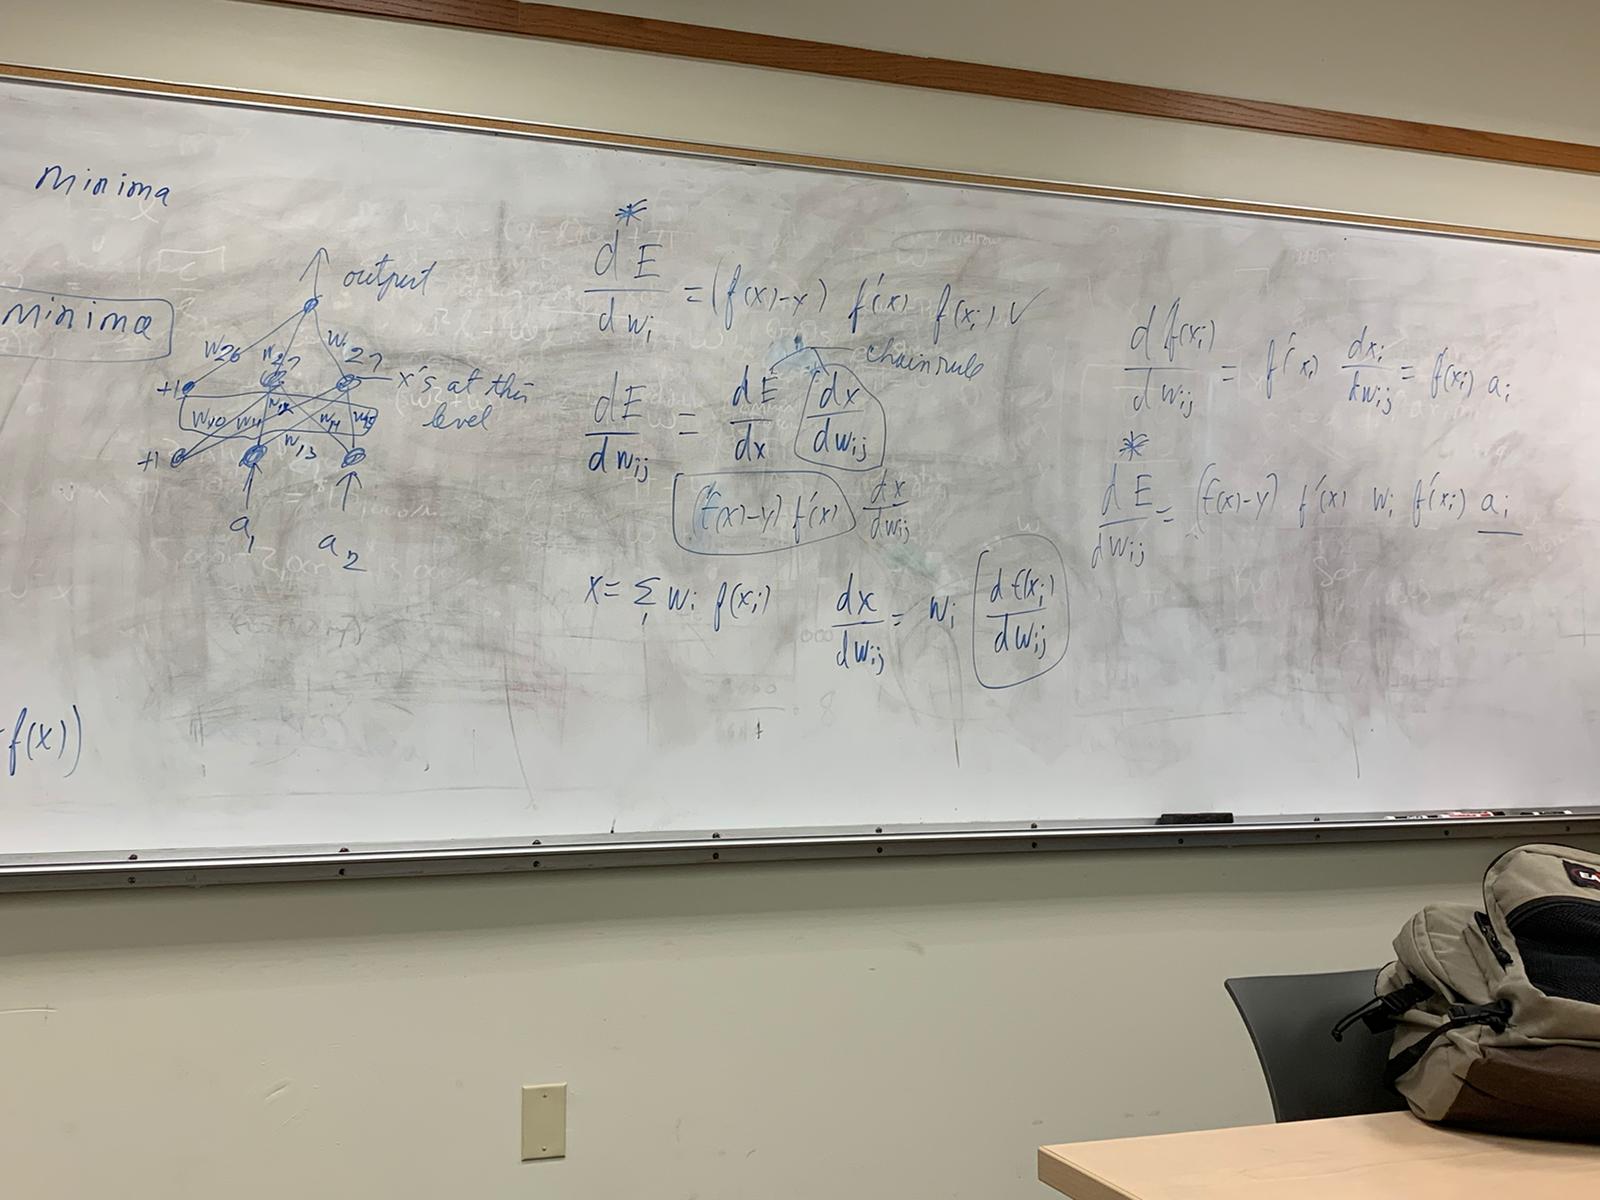 minima
minima
f(x))
output
w26
w27
+1
x's at this
level
w13
+1
a1
a2
*
dE/dwi = (f(x)-y) f'(x) f(xi) ✓
chain rule
dE/dwij = dE/dx dx/dwij
(f(x)-y) f'(x) dx/dwij
x = Σi wi f(xi)
dx/dwij = wi df(xi)/dwij
df(xi)/dwij = f'(xi) dxi/dwij = f'(xi) ai
*
dE/dwij = (f(x)-y) f'(x) wi f'(xi) ai